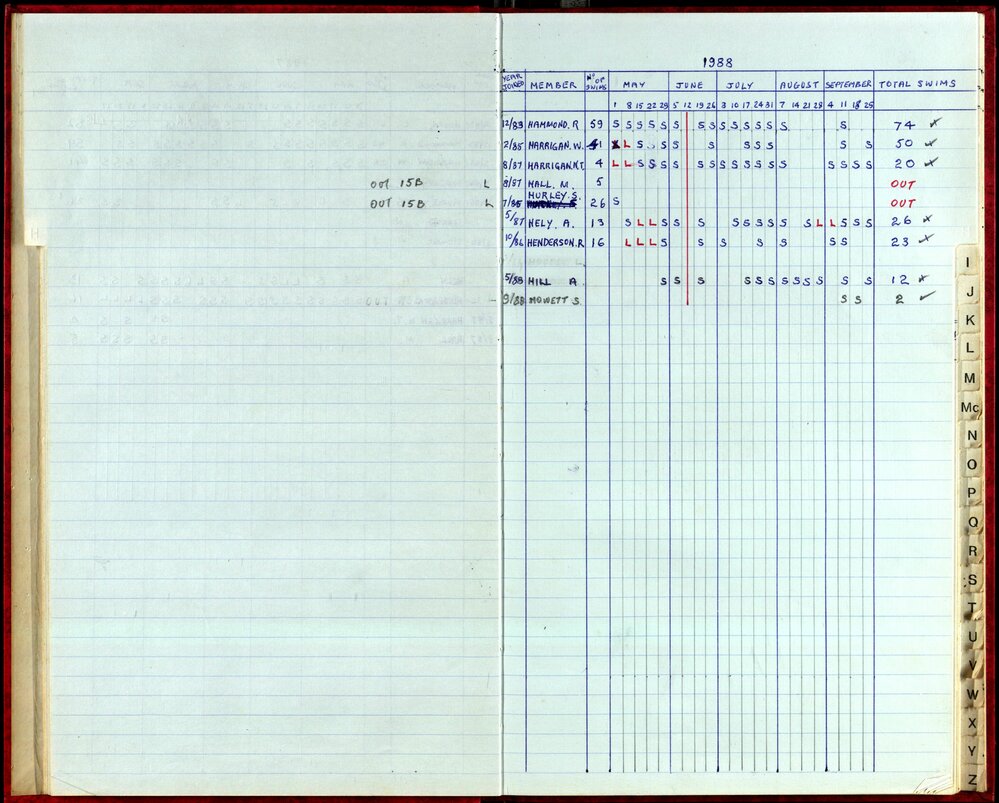 1988
YEAR JOINED MEMBER NO OF SWIMS MAY JUNE JULY AUGUST SEPTEMBER TOTAL SWIMS
1 8 15 22 29 5 12 19 26 3 10 17 24 31 7 14 21 28 4 11 18 25
12/83 HAMMOND. R 59 S S S S S S S S S S S S S S S 74
2/85 HARRIGAN. W. 41 L S S S S S S S S S S 50
8/87 HARRIGAN. N.T. 4 L L S S S S S S S S S S S S S S S S 20
OUT 15B L 8/87 HALL. M. 5 OUT
OUT 15B L 7/85 HURLEY. S. 26 S OUT
5/87 HELY. A. 13 S L L S S S S S S S S S L L S S S 26
10/86 HENDERSON. R 16 L L L S S S S S S S 23
5/88 HILL A S S S S S S S S S S S 12
9/88 HOWETT S. S S 2
H
I
J
K
L
M
Mc
N
O
P
Q
R
S
T
U
V
W
X
Y
Z